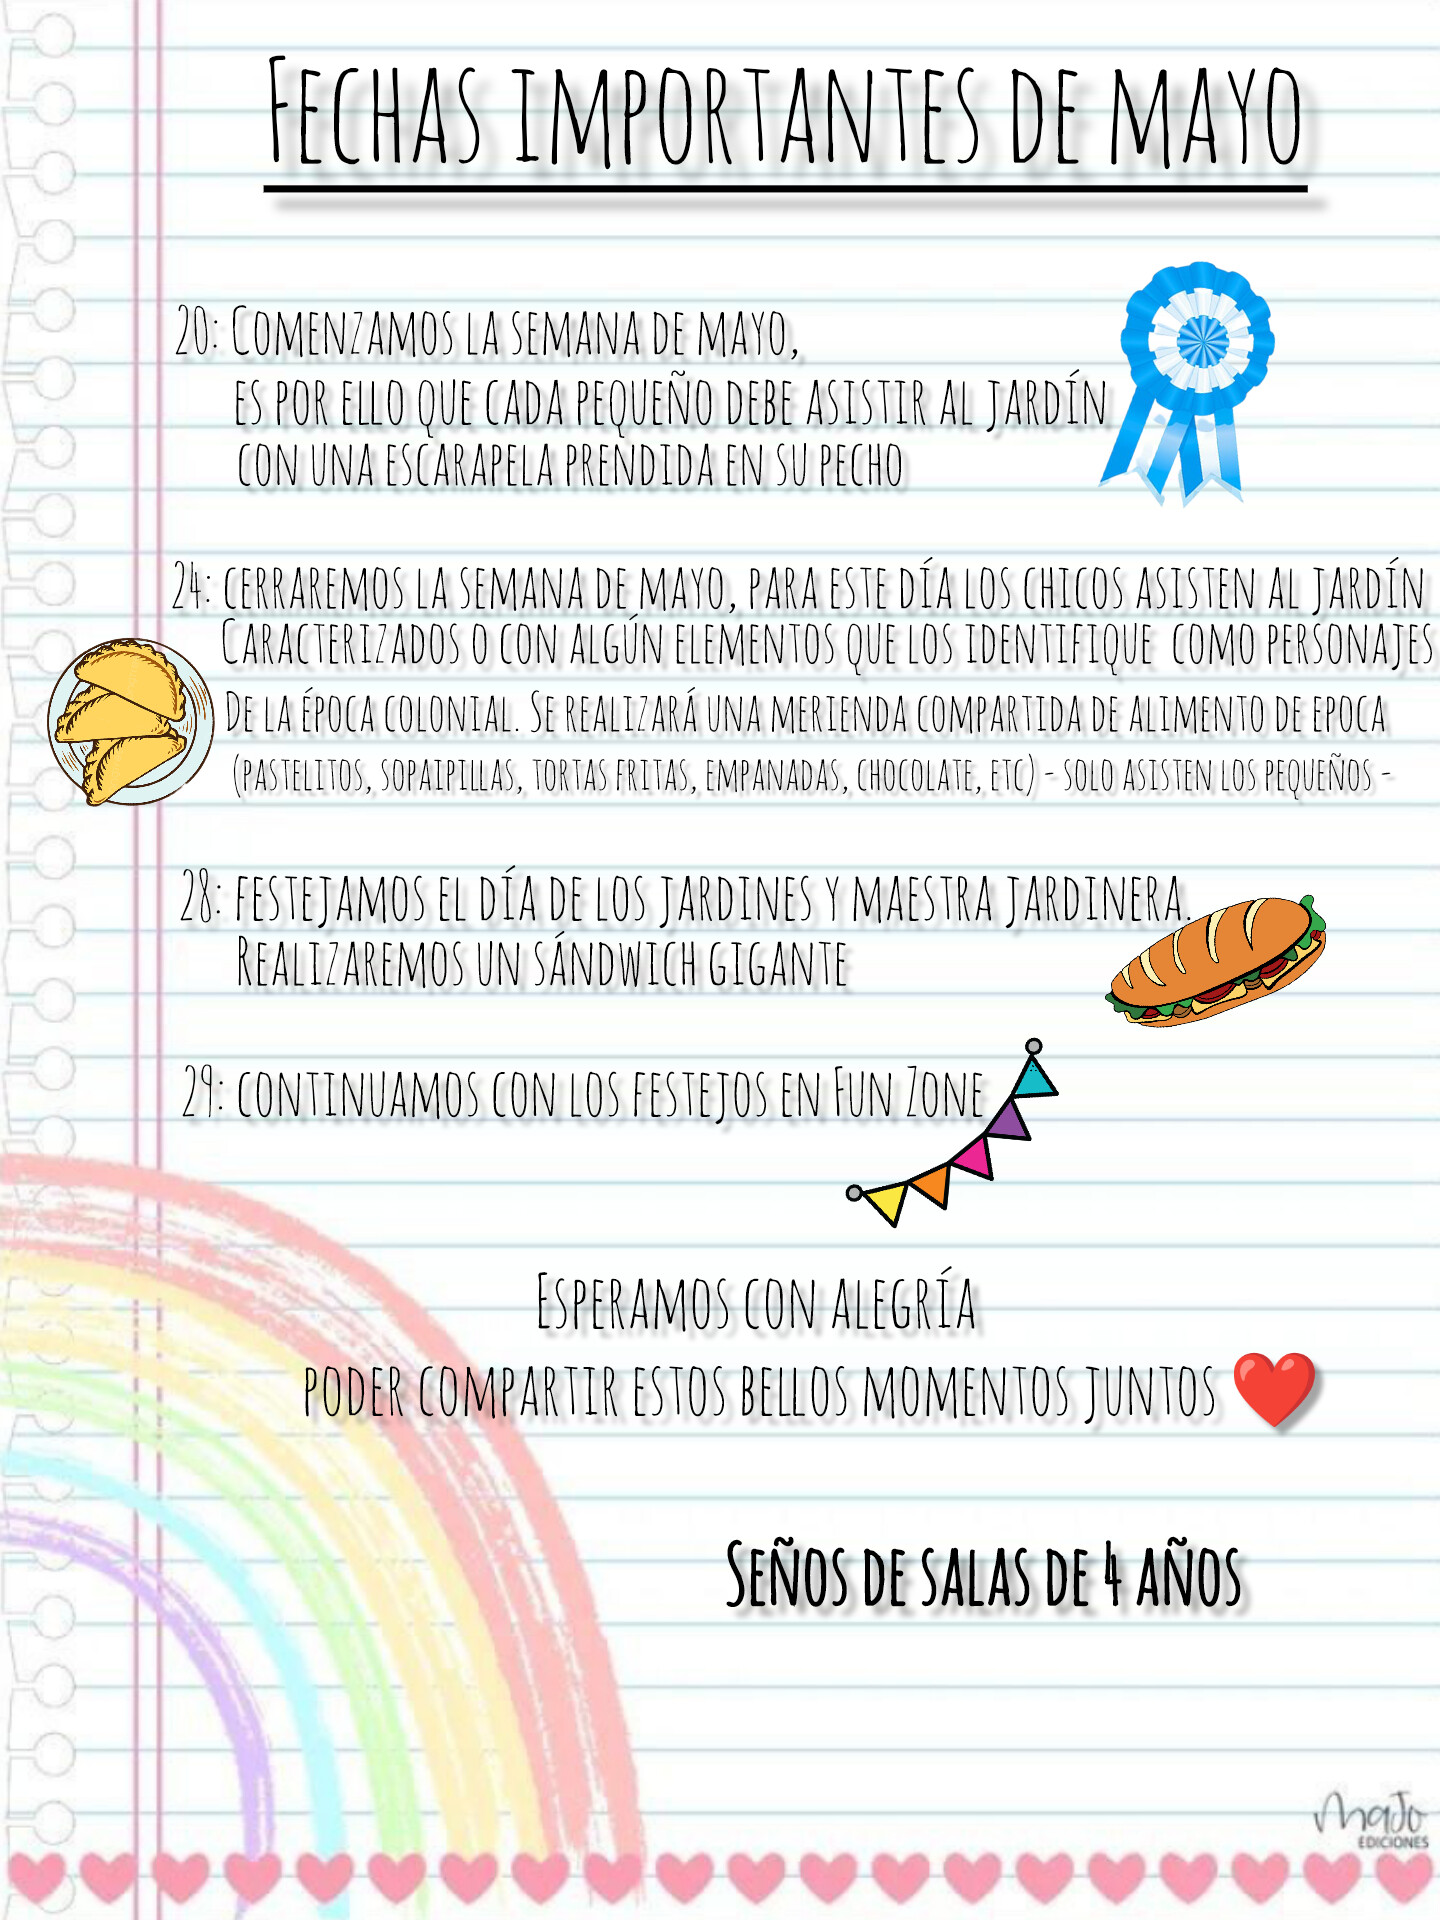 Fechas importantes de mayo
20: Comenzamos la semana de mayo,
es por ello que cada pequeño debe asistir al jardín
con una escarapela prendida en su pecho
24: cerraremos la semana de mayo, para este día los chicos asisten al jardín
Caracterizados o con algún elementos que los identifique como personajes
De la época colonial. Se realizará una merienda compartida de alimento de epoca
(pastelitos, sopaipillas, tortas fritas, empanadas, chocolate, etc) - solo asisten los pequeños -
28: festejamos el día de los jardines y maestra jardinera.
Realizaremos un sándwich gigante
29: continuamos con los festejos en Fun Zone
Esperamos con alegría
poder compartir estos bellos momentos juntos
Seños de salas de 4 años
MaJo
EDICIONES